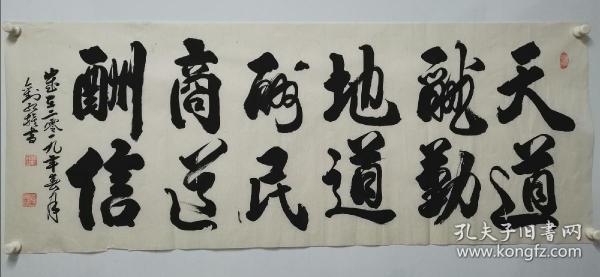 天道
酬勤
地道
酬民
商道
酬信
歲在二零一九年春月
书
孔夫子旧书网
www.kongfz.com